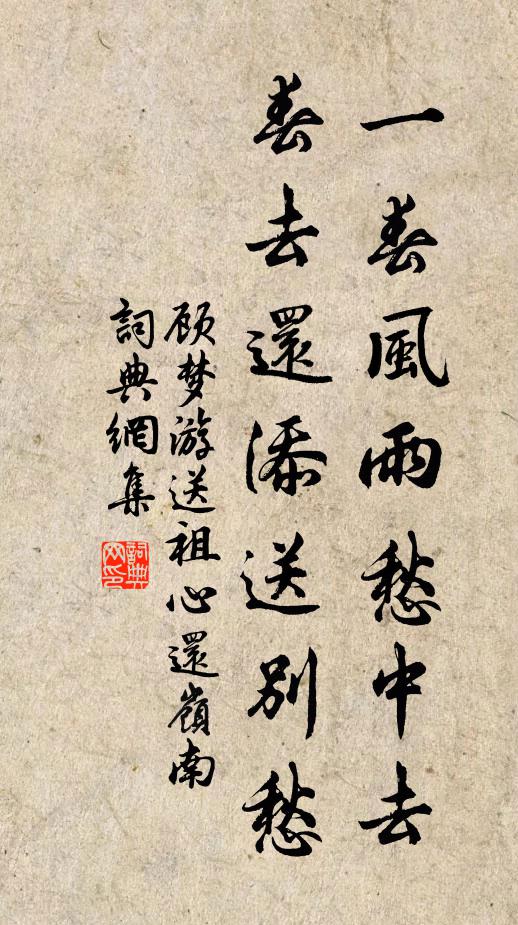 一春風雨愁中去
春去還添送別愁
顾梦游送祖心還嶺南
詞典網集
詞典网印